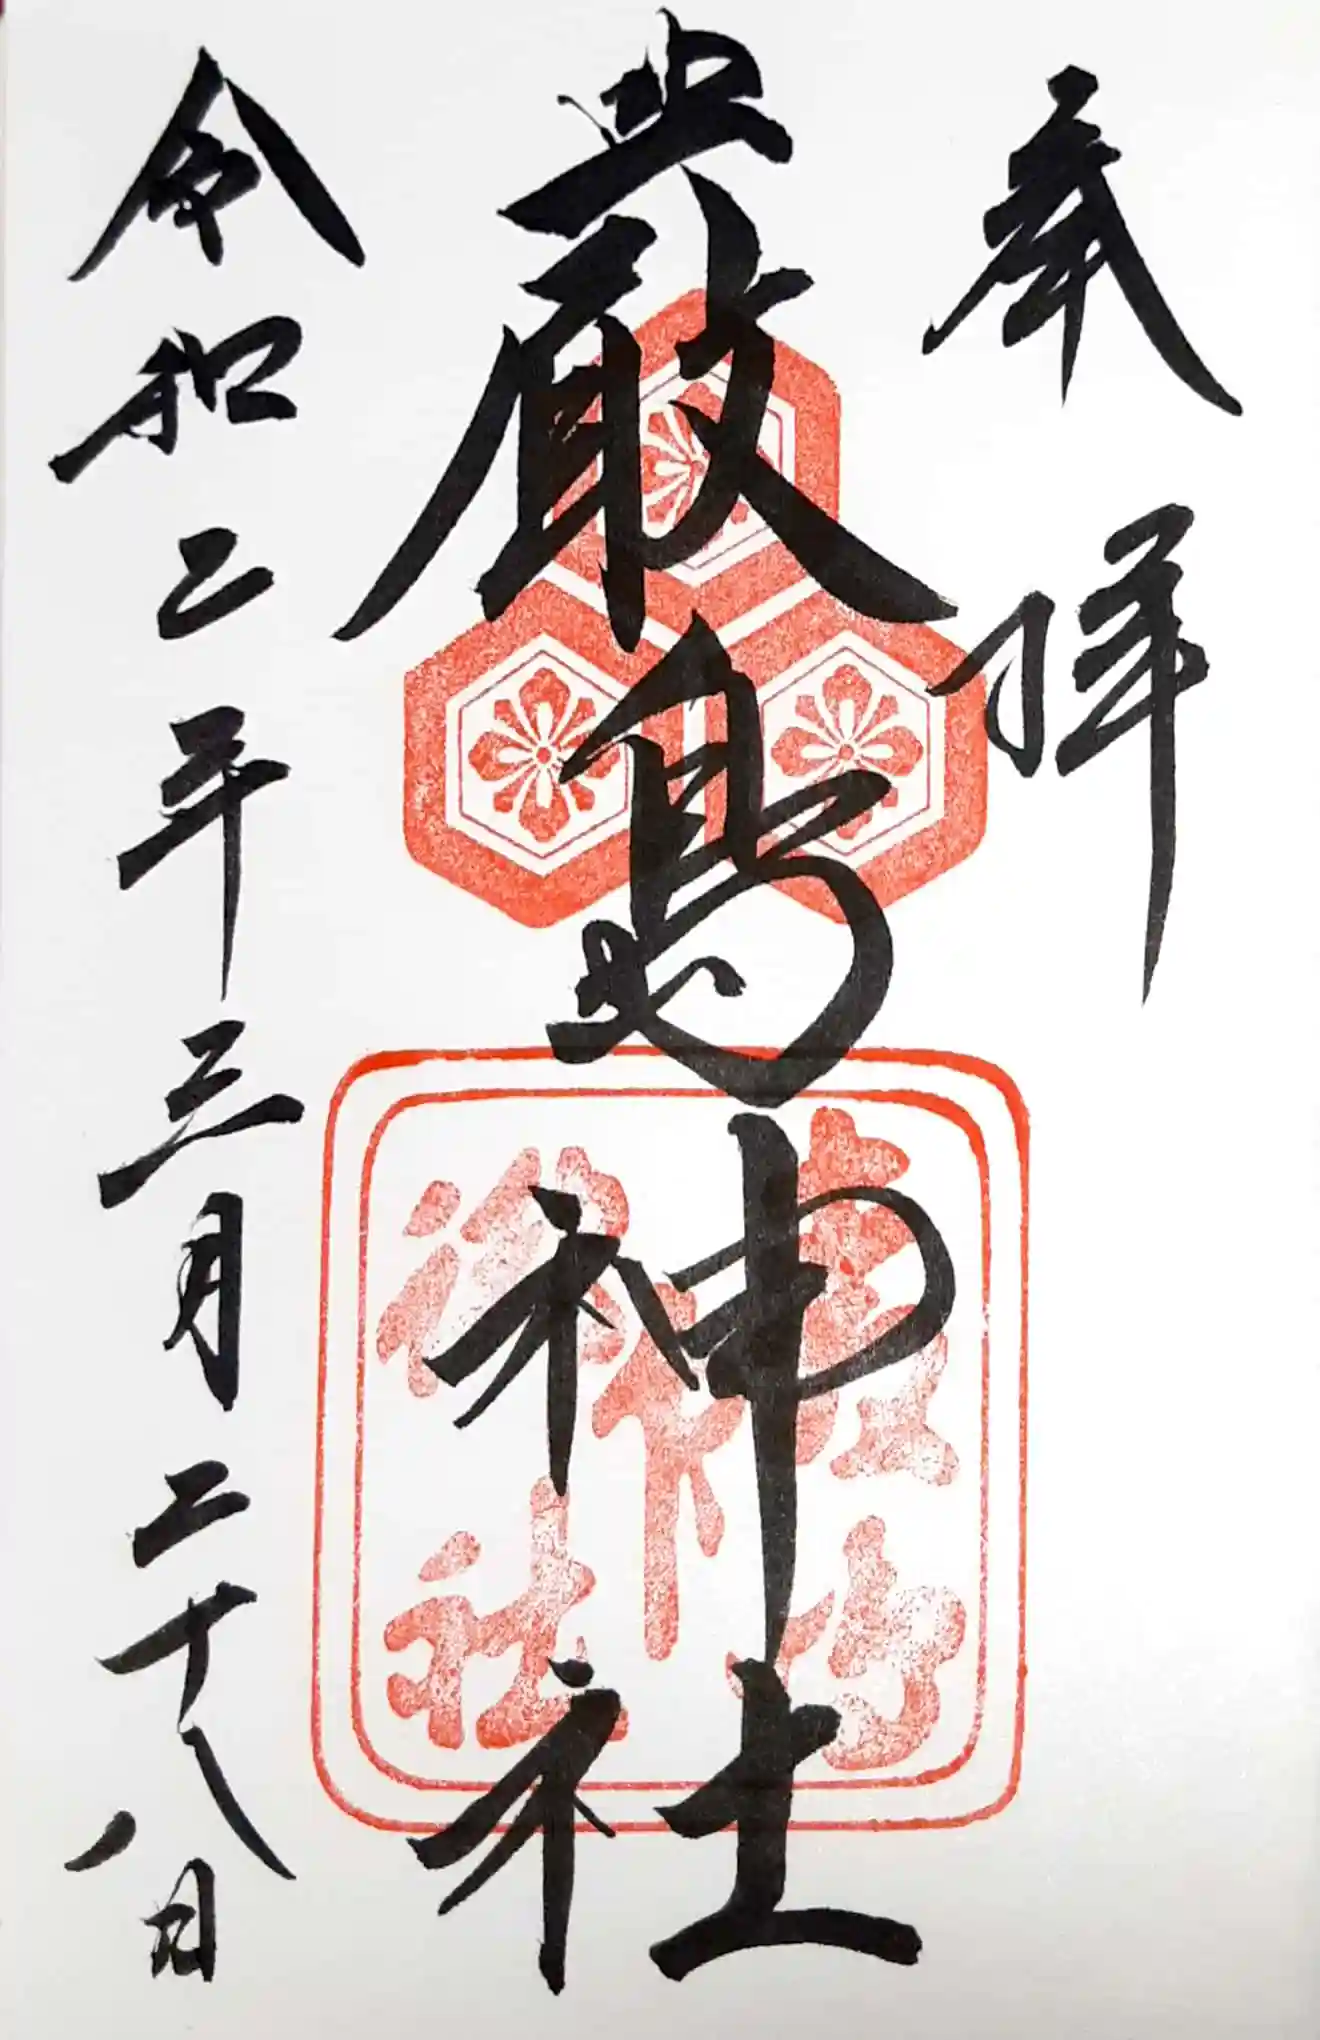 奉拝
厳島神社
令和二年三月二十八日